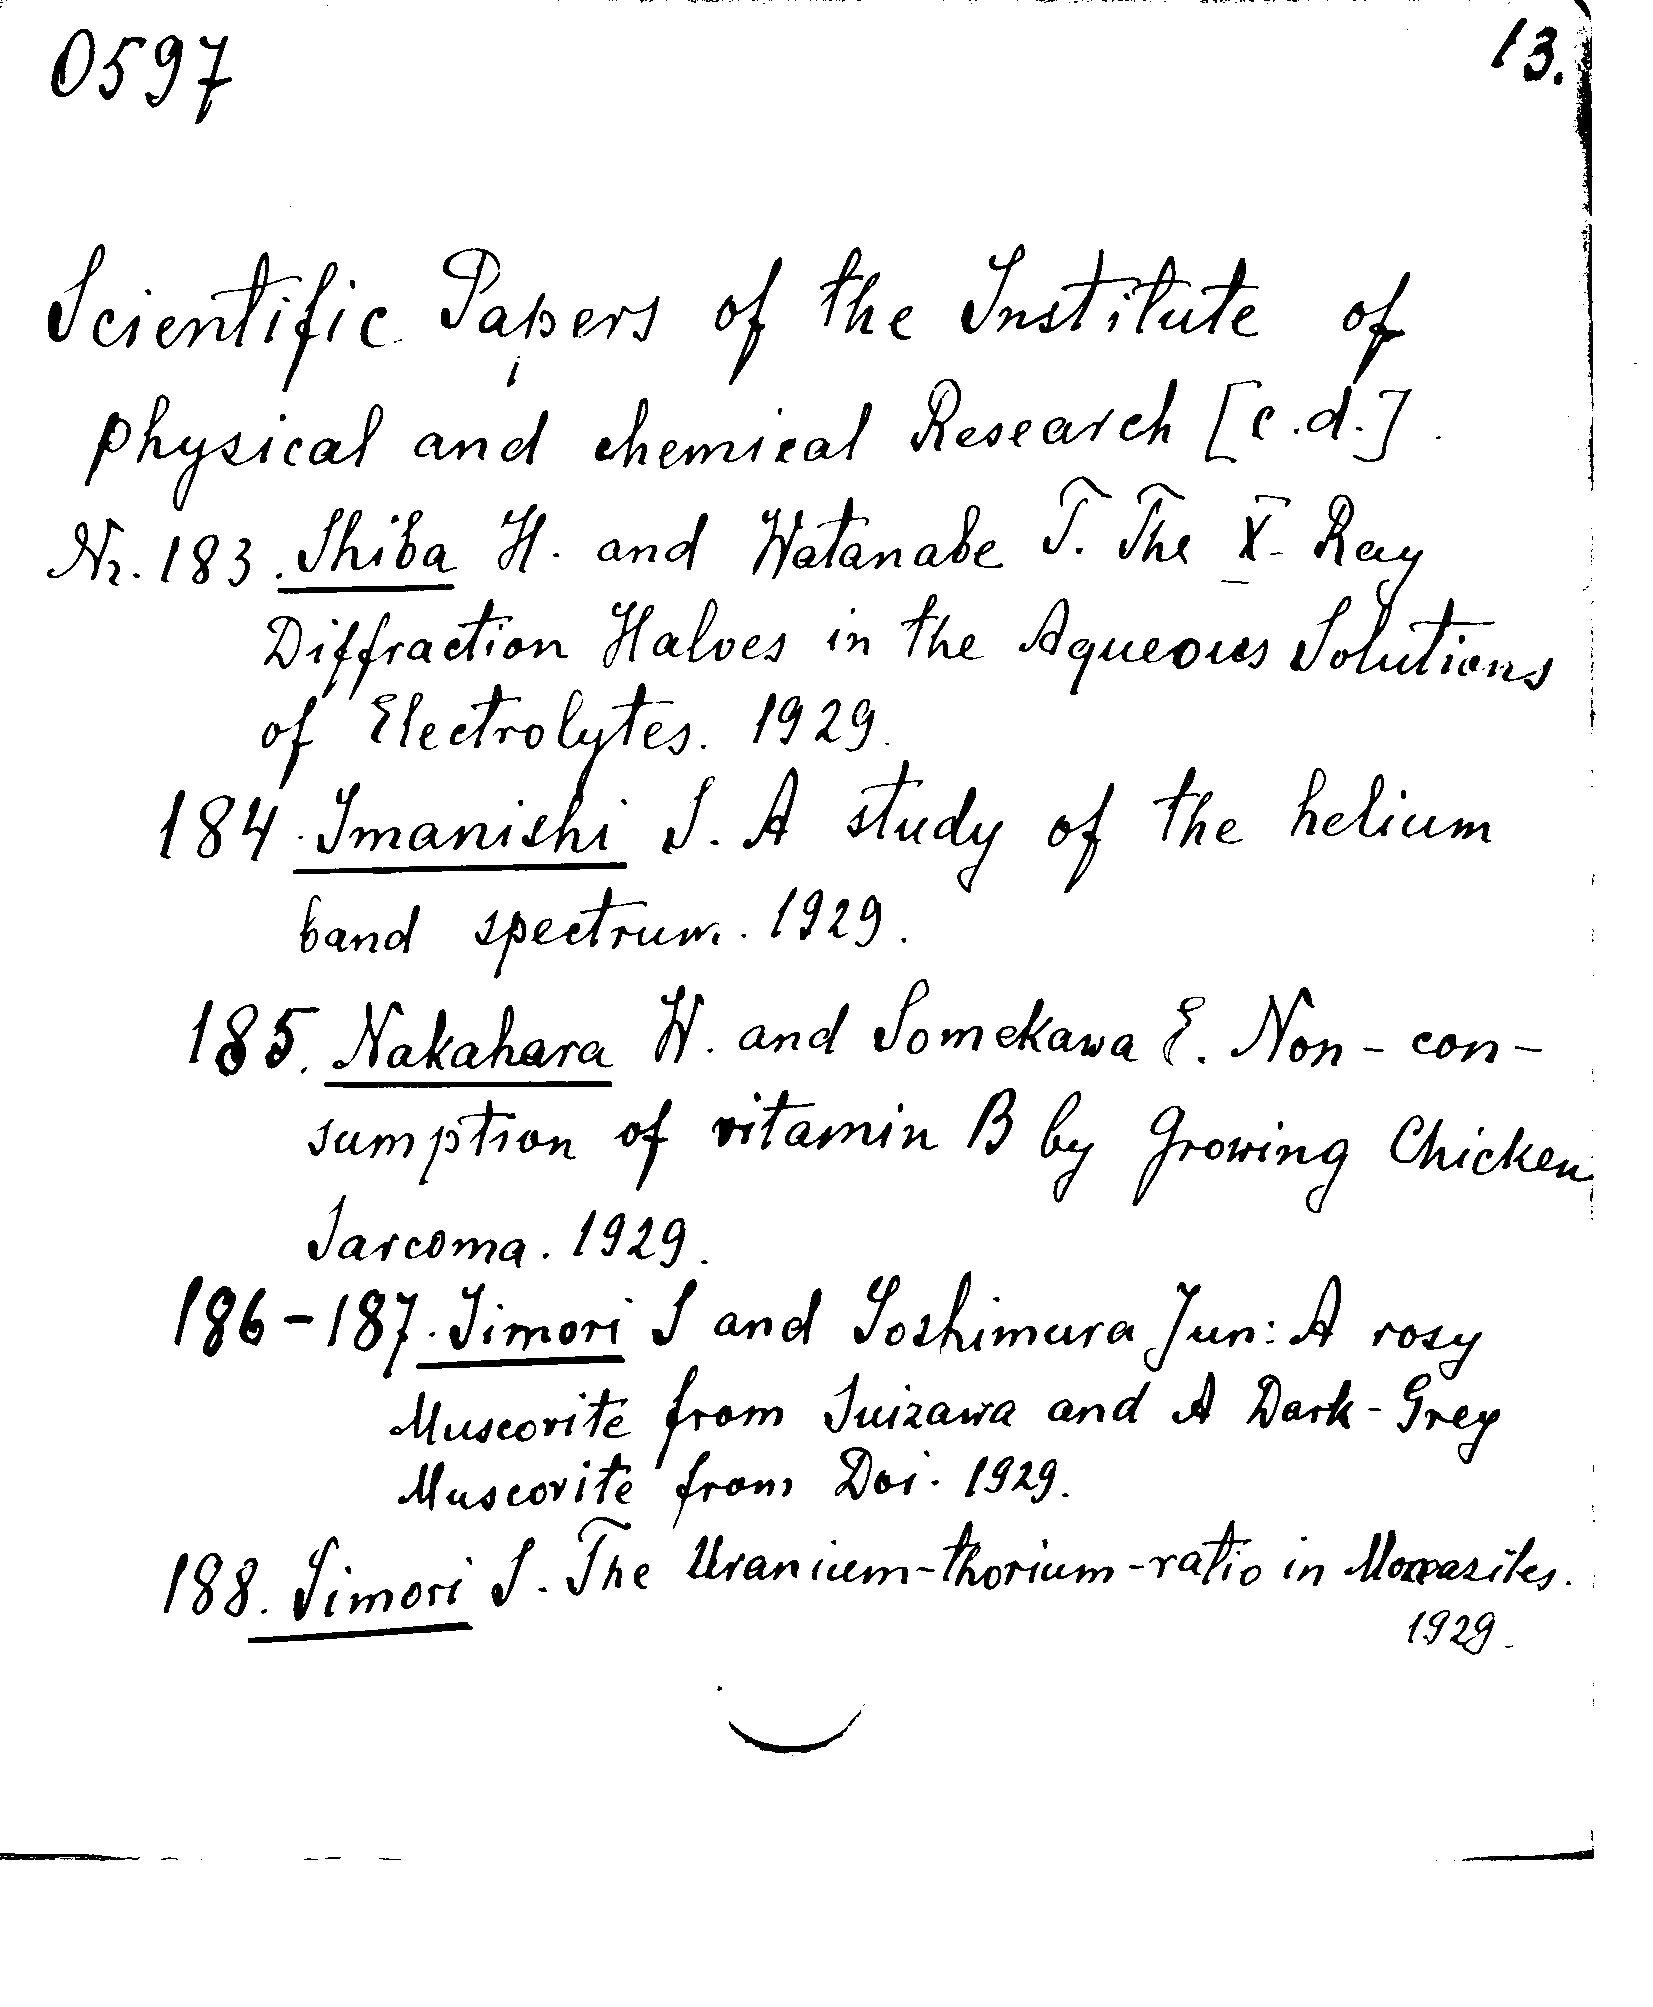 0597
13.
Scientific Papers of the Institute of
physical and chemical Research [c.d.].
Nr. 183. Shiba H. and Watanabe T. The X-Ray
Diffraction Haloes in the Aqueous Solutions
of Electrolytes. 1929.
184. Imanishi S. A study of the helium
band spectrum. 1929.
185. Nakahara W. and Somekawa E. Non-con-
sumption of vitamin B by Growing Chicken
Sarcoma. 1929.
186-187. Iimori S and Yoshimura Jun: A rosy
Muscovite from and A Dark-Grey
Muscovite from Doi. 1929.
188. Iimori S. The Uranium-thorium-ratio in Monazites.
1929.